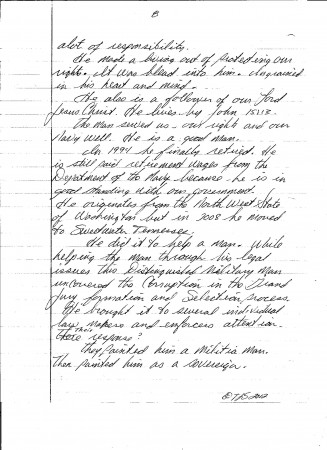 B
alot of responsibility.
He made a living out of protecting our
rights. It was bleed into him. Ingrained
in his heart and mind.
He also is a follower of our Lord
Jesus Christ. He lives by John 15:13.
The man served us - our rights and our
Navy well. He is a good man.
In 1994 he finally retired. He
is still paid retirement wages from the
Department of the Navy because he is in
good standing with our government.
He originates from the North West State
of Washington but in 2008 he moved
to Sweetwater Tennessee.
He did it to help a man. While
helping the man through his legal
issues this Distinguished Military Man
uncovered the Corruption in the Grand
Jury formation and Selection process.
He brought it to several individual
law makers and enforcers attention.
Their response?
They painted him a Militia Man.
Then painted him as a Sovereign.